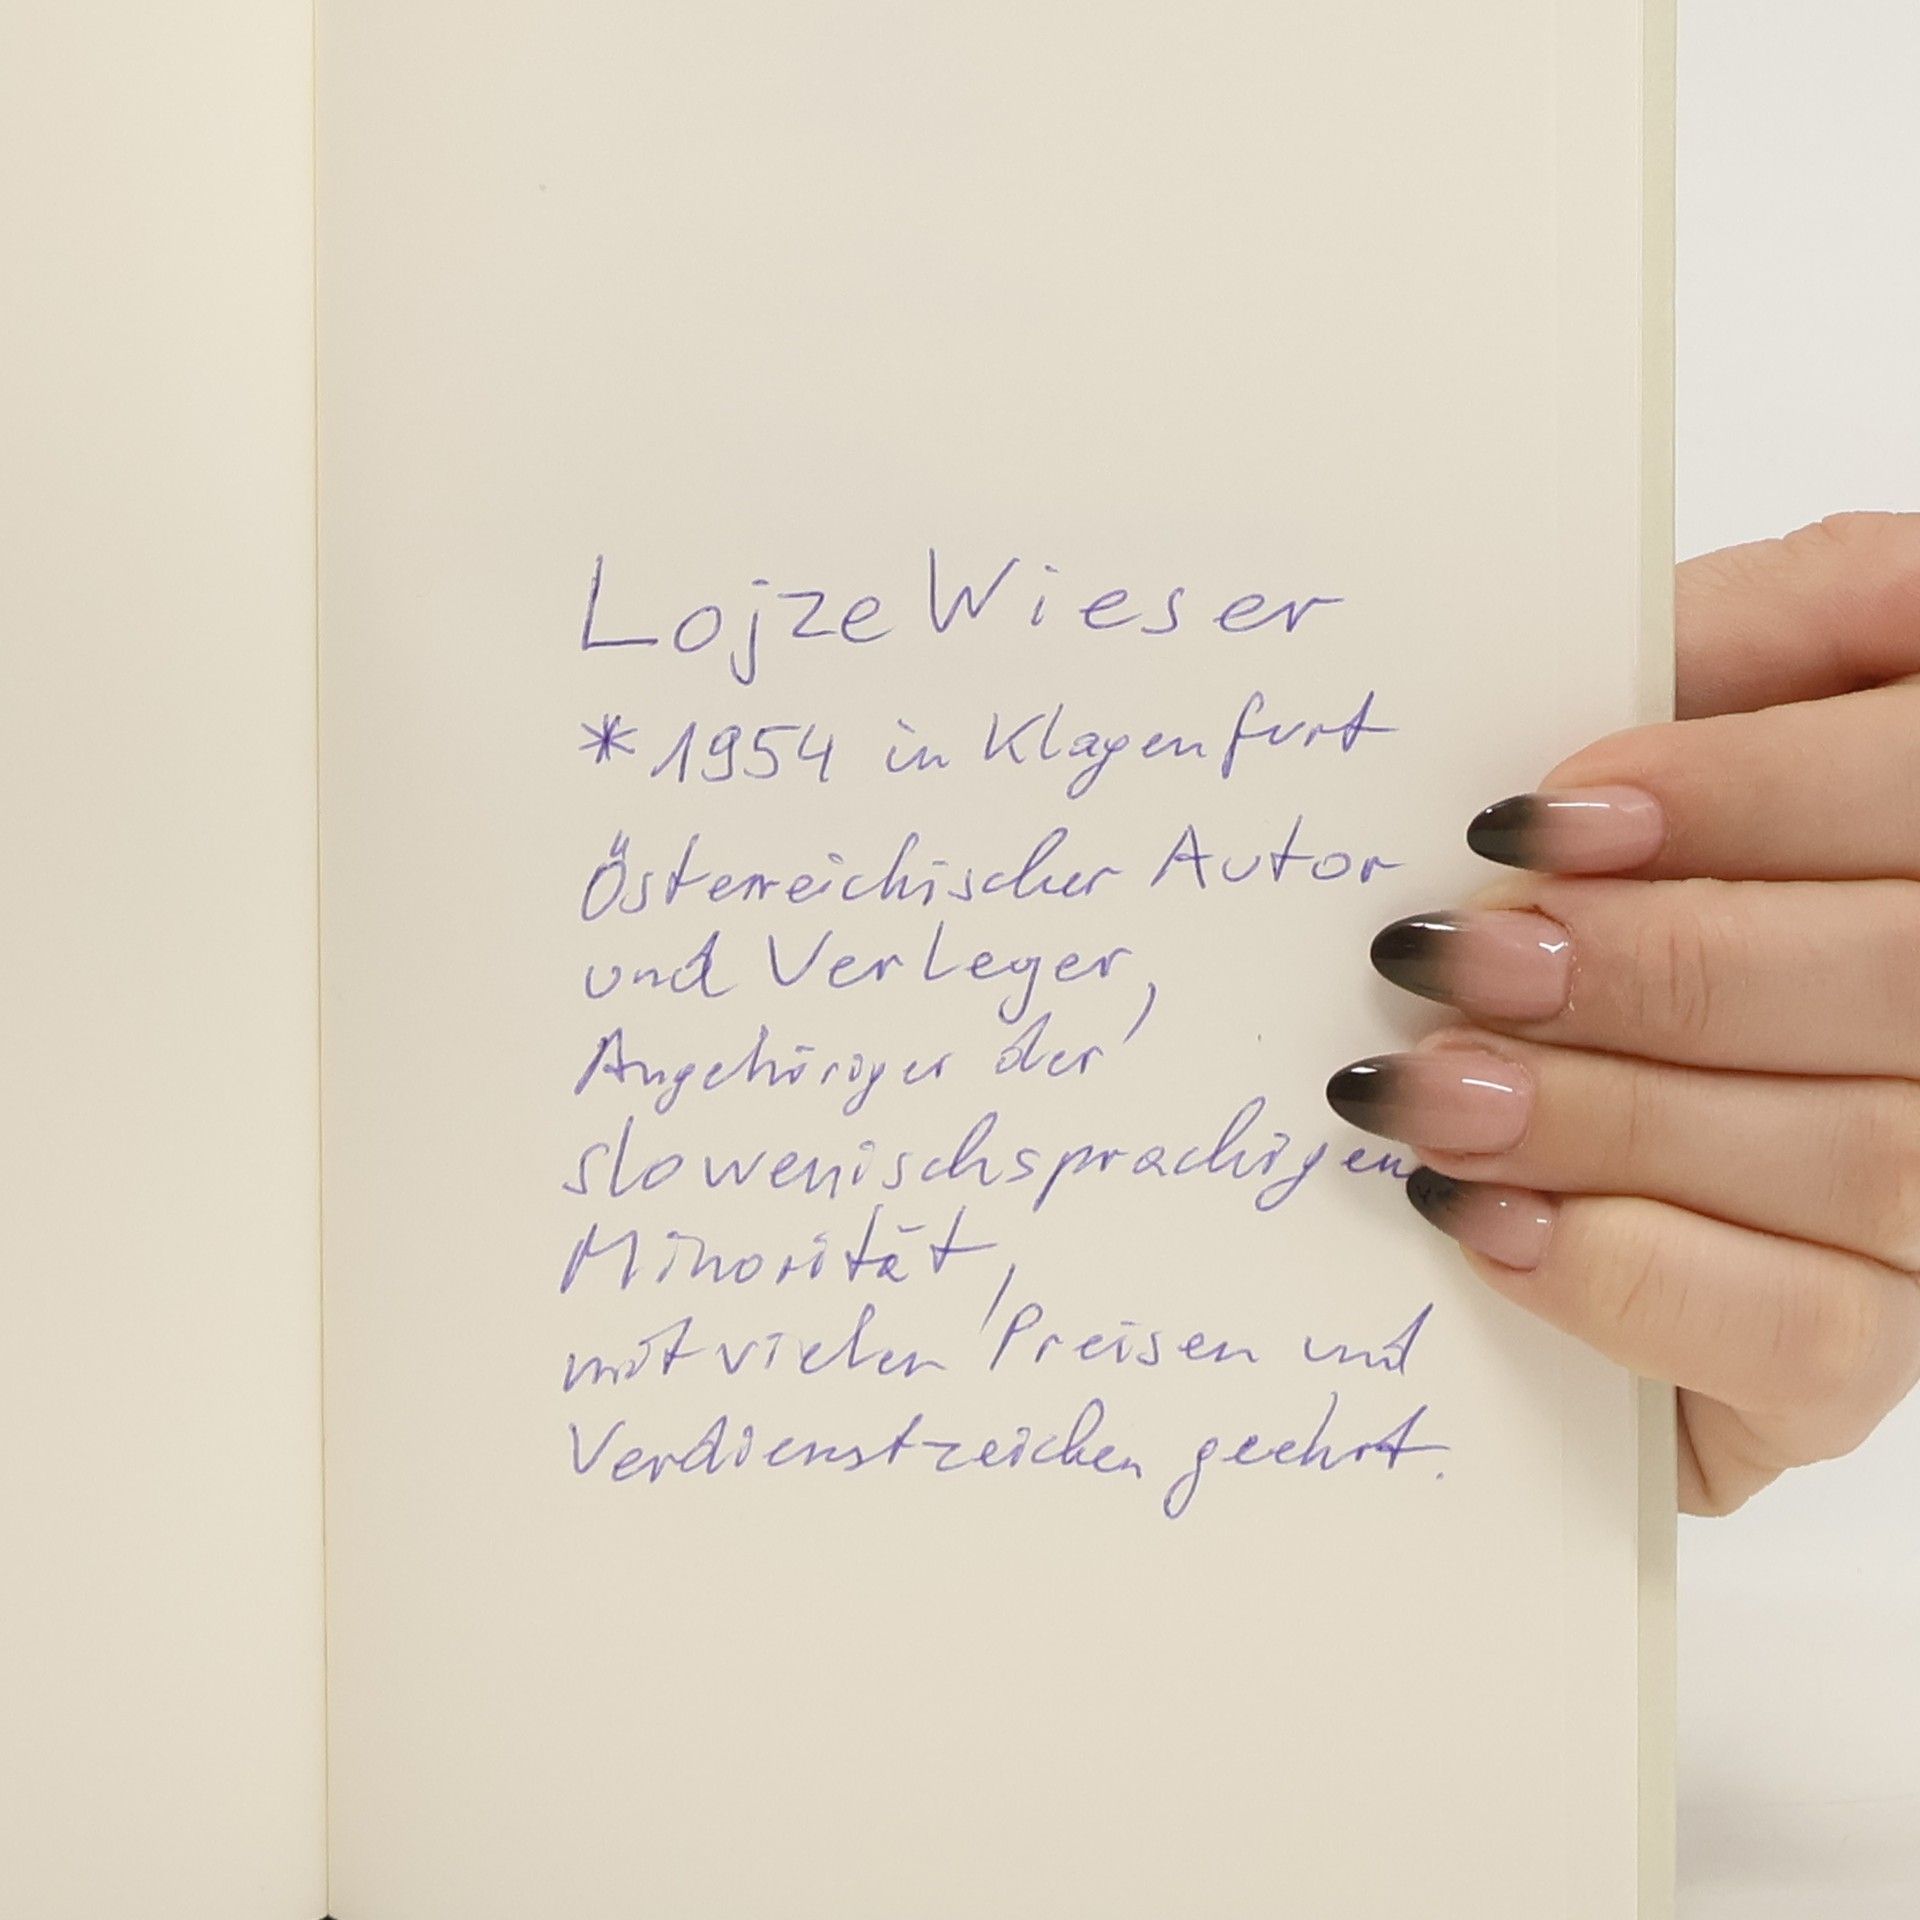 Lojze Wieser
*1954 in Klagenfurt
Österreichischer Autor
und Verleger,
Angehöriger der
slowenischsprachigen
Minorität,
mit vielen Preisen und
Verdienstzeichen geehrt.